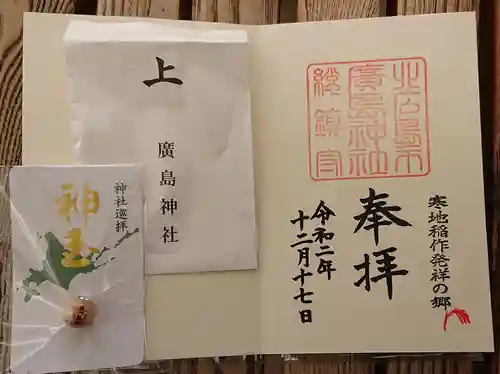 上
廣島神社
神社巡拝
神玉
北広島市
廣島神社
総鎮守
奉拝
令和二年
十二月十七日
寒地稲作発祥の郷